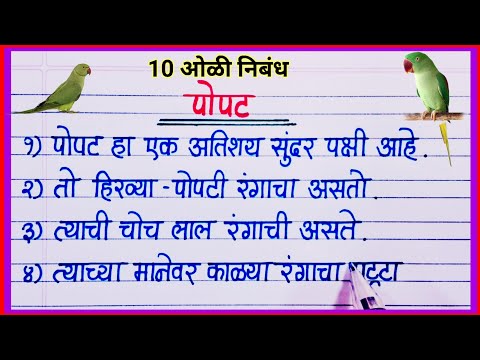 10 ओळी निबंध
पोपट
१) पोपट हा एक अतिशय सुंदर पक्षी आहे.
२) तो हिरव्या-पोपटी रंगाचा असतो.
३) त्याची चोच लाल रंगाची असते.
४) त्याच्या मानेवर काळ्या रंगाचा पट्टा